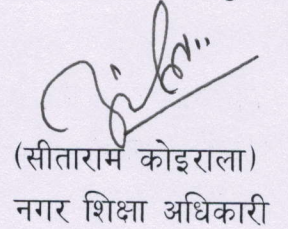 (सीताराम कोइराला)
नगर शिक्षा अधिकारी